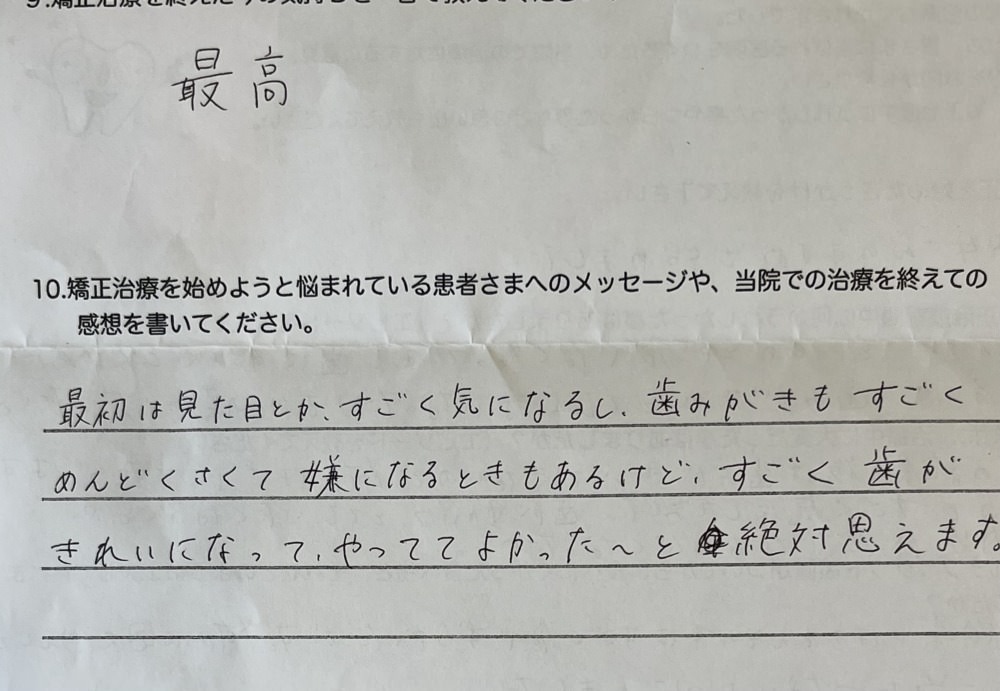 最高
10.矯正治療を始めようと悩まれている患者さまへのメッセージや、当院での治療を終えての
感想を書いてください。
最初は見た目とか、すごく気になるし、歯みがきもすごく
めんどくさくて嫌になるときもあるけど、すごく歯が
きれいになって、やっててよかった〜と絶対思えます。